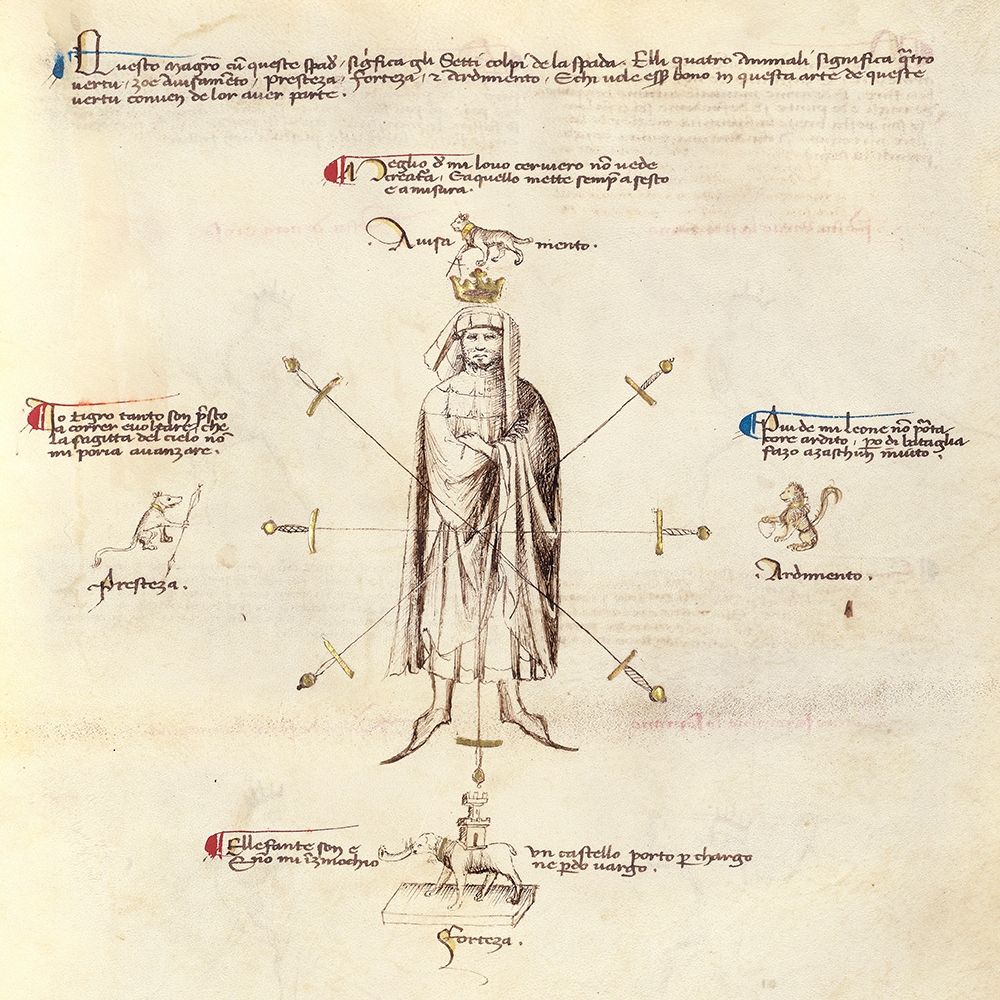 Questo magrō cū queste spad' sig'fica gli Setti colpi de la spada. Elli quatro animali significa q̄tro
vertu, zoe avisamēto, presteza, forteza, z ardimento. E chi vole ess' bono in questa arte de queste
vertu conven de lor aver parte.
Meglio d' mi lovo cerviero nō vede
creatura, Eaquello mette semp' a sesto
e a misura.
Avisa mento.
Io tigro tanto son p'sto
a correr e voltare, che
la sagitta del cielo nō
mi poria avanzare.
Presteza.
Piu de mi leone nō porta
core ardito, po di bataglia
fazo a zaschun invito.
Ardimento.
Ellefante son e
un castello porto p chargo
nō mi inzinochio
ne p̄do vargo.
Forteza.